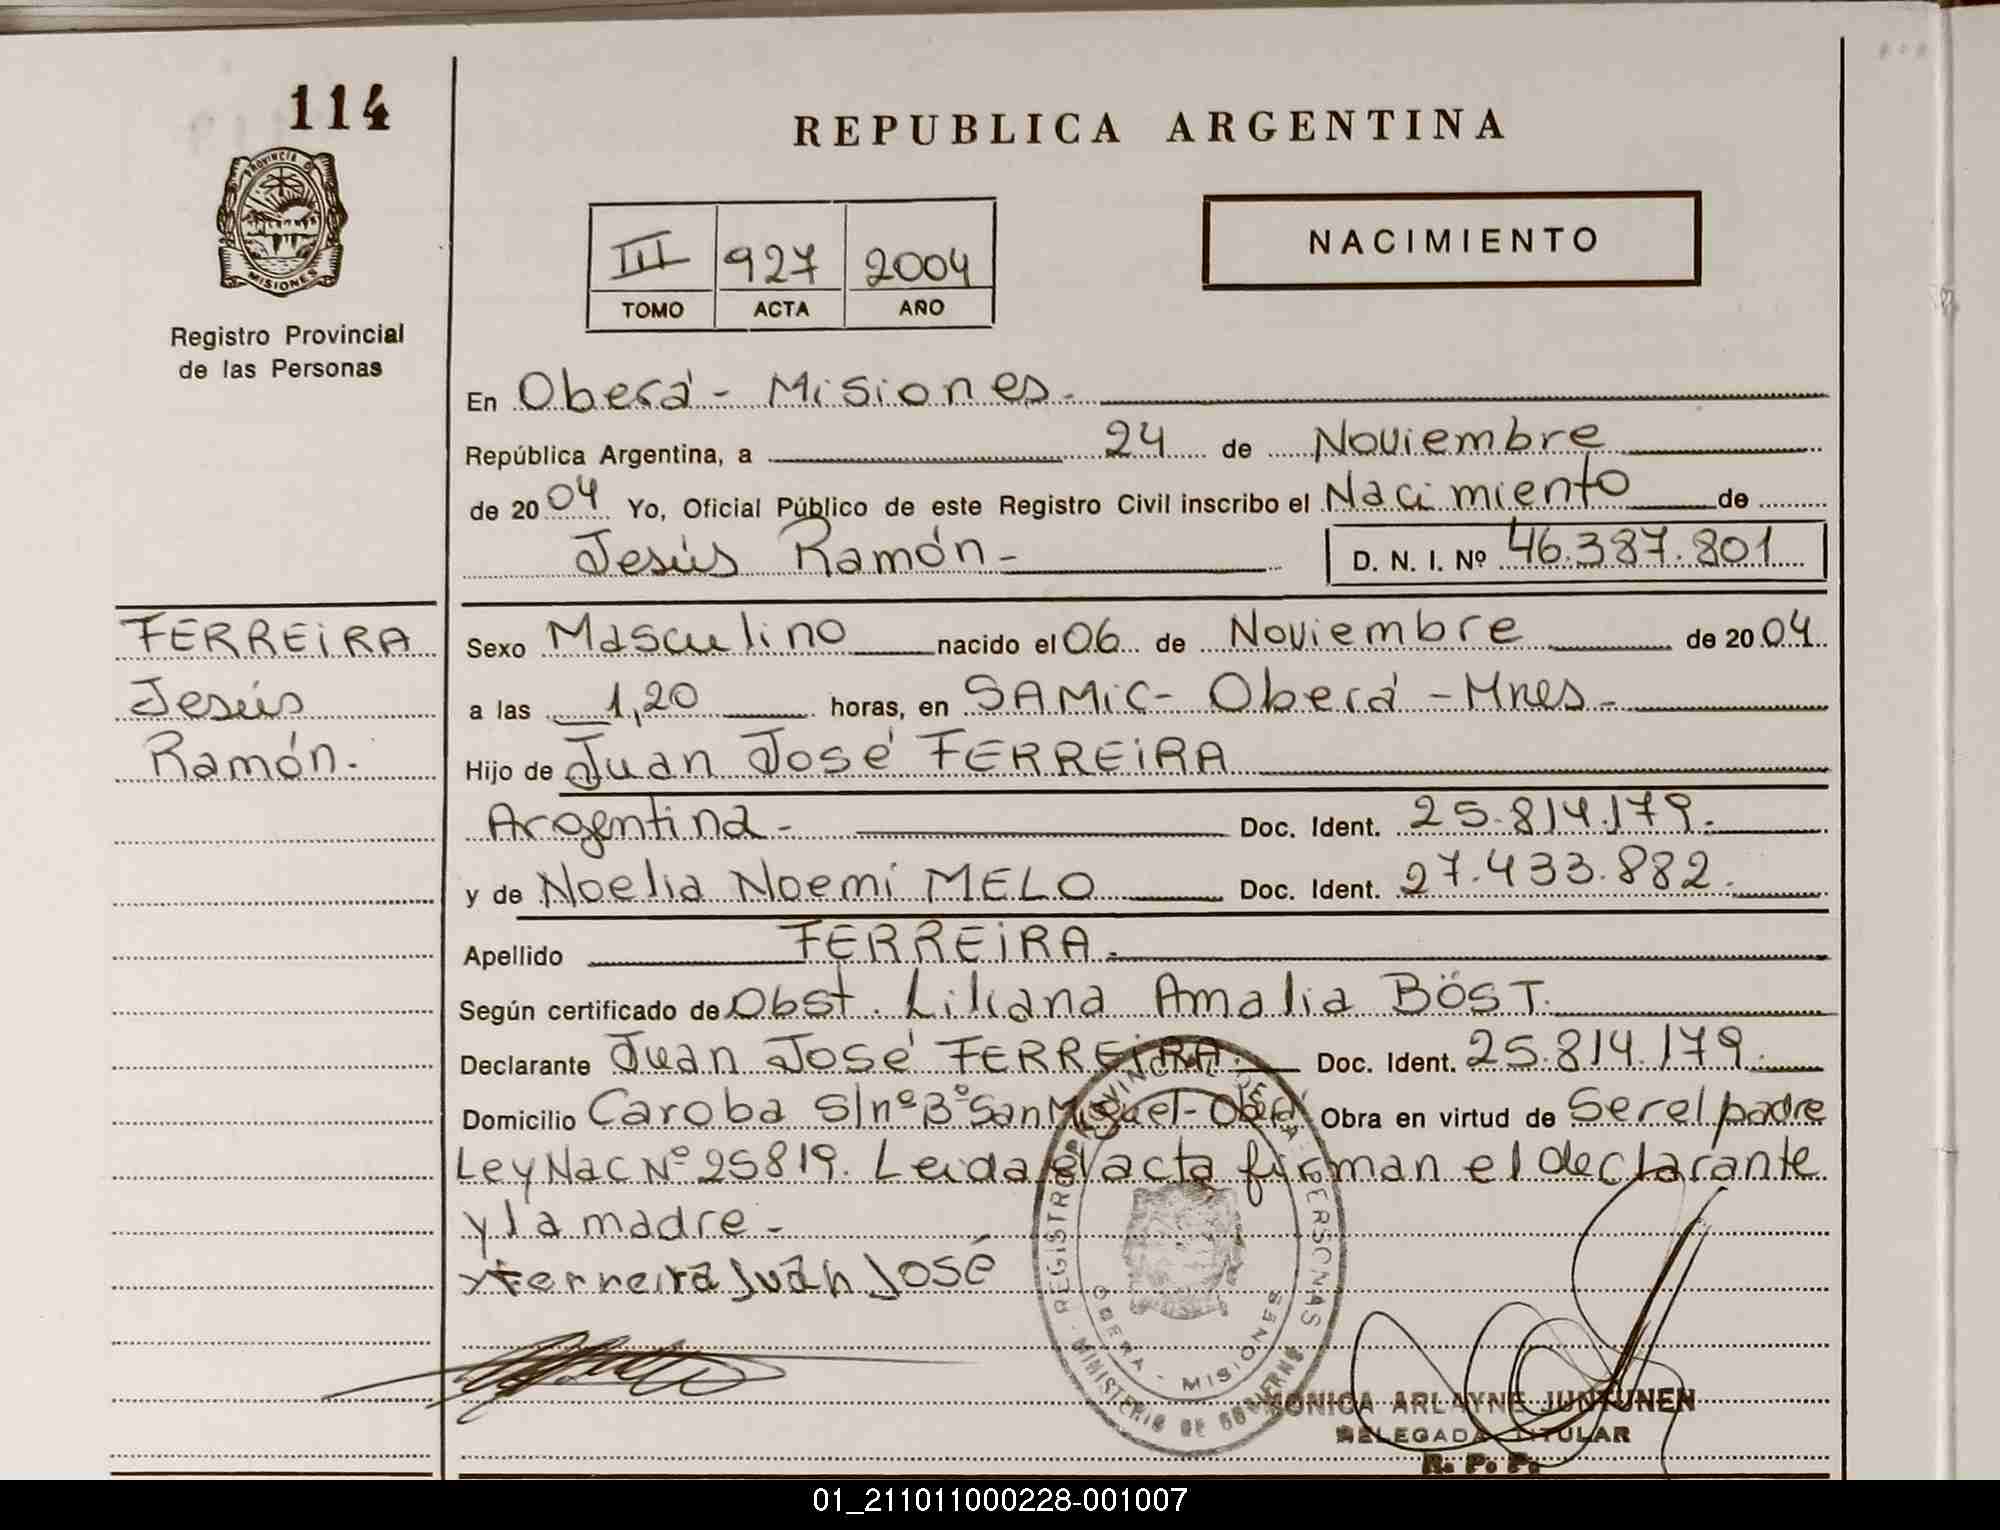 114
REPUBLICA ARGENTINA
PROVINCIA DE
MISIONES
Registro Provincial
de las Personas
III 927 2004
TOMO ACTA AÑO
NACIMIENTO
En Oberá - Misiones.
República Argentina, a 24 de Noviembre
de 2004 Yo, Oficial Público de este Registro Civil inscribo el Nacimiento de
Jesús Ramón- D. N. I. Nº 46.387.801
FERREIRA
Jesús
Ramón.
Sexo Masculino nacido el 06 de Noviembre de 2004
a las 1,20 horas, en SAMIC- Oberá - Mnes-
Hijo de Juan José FERREIRA
Argentina- Doc. Ident. 25.814.179.
y de Noelia Noemí MELO Doc. Ident. 27.433.882.
Apellido FERREIRA.
Según certificado de Obst. Liliana Amalia BÖST.
Declarante Juan José FERREIRA. Doc. Ident. 25.814.179.
Domicilio Caroba S/nº Bº San Miguel - Oberá Obra en virtud de Ser el padre
Ley Nac Nº 25819. Leida el acta firman el declarante
y la madre -
x Ferreira Juan José
REGISTRO PROVINCIAL DE LAS PERSONAS
OBERA - MISIONES
MINISTERIO DE GOBIERNO
SONICA ARLAYNE JUNTUNEN
DELEGADA TITULAR
R. P. P.
01_211011000228-001007